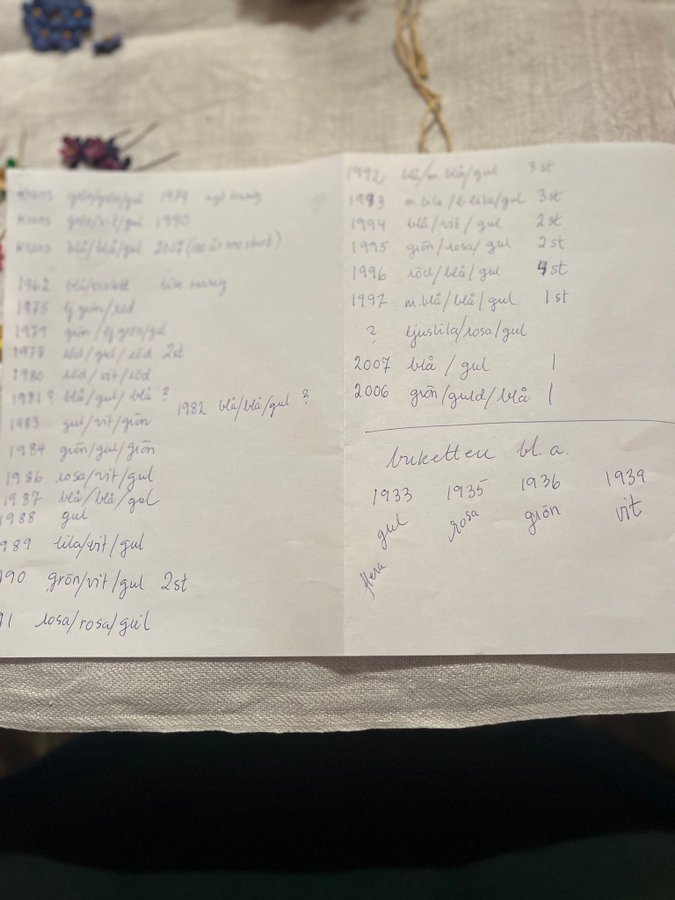 krans grön/grön/gul 1979
krans grön/ /gul 1990
krans blå/blå/gul 2007 (
1962 blå/violett
1975 lj grön/röd
1979 grön/lj grön/gul
1978 röd/gul/röd 2st
1980 röd/vit/röd
1981? blå/gul/blå ?
1982 blå/blå/gul ?
1983 gul/vit/grön
1984 grön/gul/grön
1986 rosa/vit/gul
1987 blå/blå/gul
1988 gul
989 lila/vit/gul
90 grön/vit/gul 2st
91 rosa/rosa/gul
1992 blå/m.blå/gul 3st
1993 m lila/ lila/gul 3st
1994 blå/vit/gul 2st
1995 grön/rosa/gul 2st
1996 röd/blå/gul 4st
1997 m.blå/blå/gul 1st
? ljuslila/rosa/gul
2007 blå/gul 1
2006 grön/guld/blå 1
buketten bl.a.
1933 1935 1936 1939
gul rosa grön vit
flera